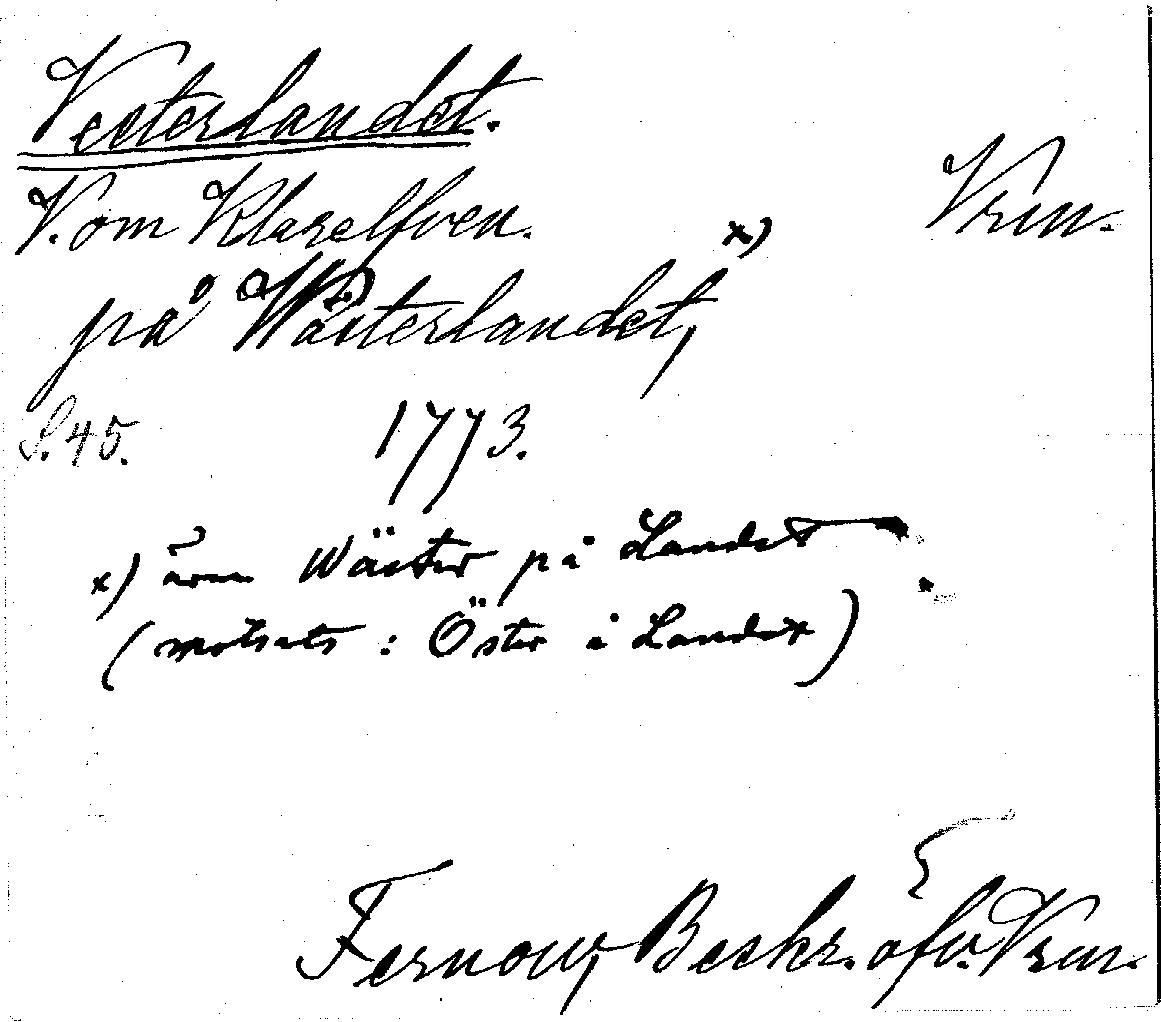 Vesterlandet.
V. om Klarelfven. Vrm.
på Wästerlandet, x)
S. 45. 1773.
x) även Wäster på Landet
(motsats: Öster å Landet)
Fernow, Beskr. öfv. Vrm.